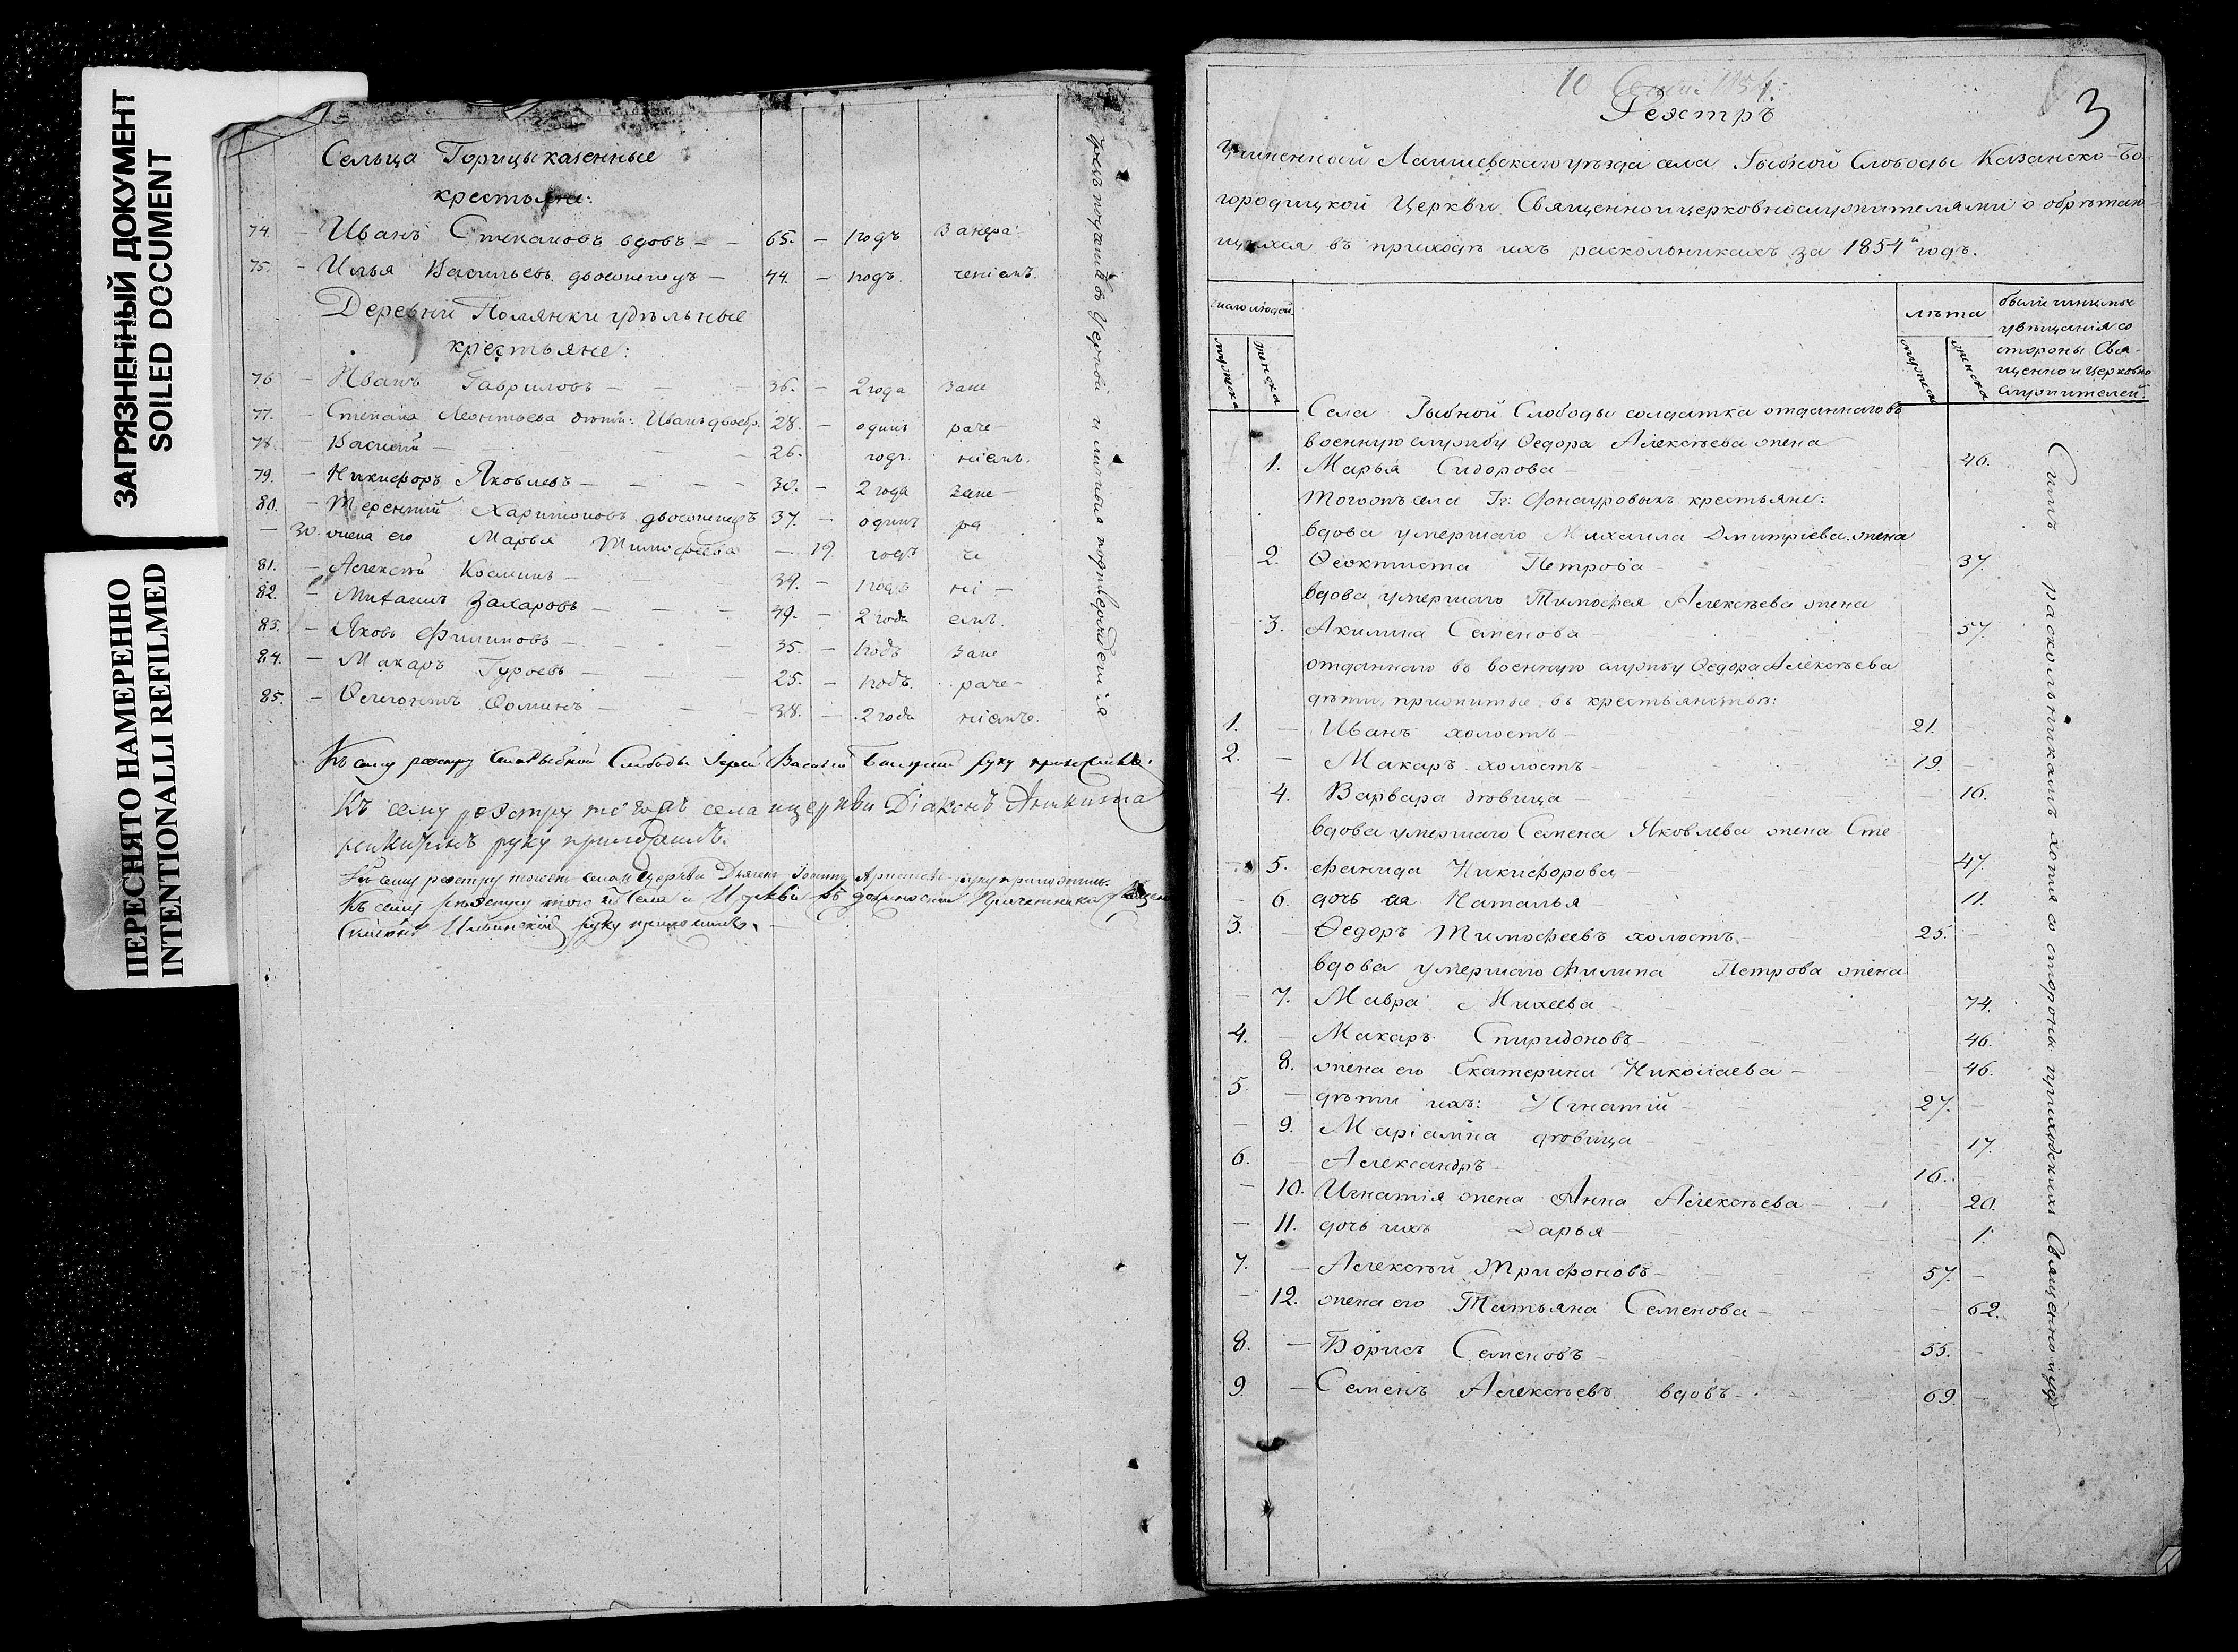 ЗАГРЯЗНЕННЫЙ ДОКУМЕНТ
SOILED DOCUMENT
ПЕРЕСНЯТО НАМЕРЕННО
INTENTIONALLI REFILMED
Сельца Горицы казенные
крестьяне:
74. – Иванъ Степановъ вдовъ – – 65. – 1 годъ
75. – Илья Васильевъ двоеженецъ – 44. – 1 годъ.
Деревни Полянки удѣльные
крестьяне:
76 – Иванъ Гавриловъ – – – 36. – 2 года
77. – Степана Леонтьева дѣти: Иванъ 28. – одинъ
78. – Василій – – – – 26. годъ
79. – Никифоръ Яковлевъ – – – – 30. – 2 года
80. – Терентій Харитоновъ двоеженецъ 37. – одинъ
– 30. жена его Марья Тимофеева – 19. годъ
81. – Алексѣй Косминъ – 39. – 1 годъ
82. – Михаилъ Захаровъ – – – 49. – 2 года
83. – Яковъ Филиповъ – – – 35. – 1 годъ
84. – Макаръ Гурьевъ – – – 25. – 1 годъ.
85. – Ѳеоктистъ Ѳоминъ – – – 38. – 2 года
Къ сему реэстру села Рыбной Слободы Іерей Василій руку приложилъ.
Къ сему реэстру тогожъ села и церкви Діаконъ
руку приложилъ.
Къ сему реэстру тогожъ села и церкви руку приложилъ.
Къ сему реэстру того же села и Церкви въ должности Причетника
Ильинскій руку приложилъ.
3
10 1854.
Реэстръ
Учиненный Лаишевскаго уѣзда села Рыбной Слободы Казанско-Бо-
городицкой Церкви Священно и церковнослужителями о обрѣтаю-
щихся въ приходѣ ихъ раскольникахъ за 1854й годъ.
число людей
лѣта
были чинимы
увѣщанія со
стороны Свя-
щенно и Церковно
служителей.
мужеска
женска
мужеска
женска
Села Рыбной Слободы солдатка отданнаго въ
военную службу Ѳедора Алексѣева жена
– 1. Марья Сидорова – 46.
Тогожъ села Гг. Фонгуровыхъ крестьяне:
вдова умершаго Михаила Дмитріева жена
– 2. Ѳеоктиста Петрова – 37.
вдова умершаго Тимофея Алексѣева жена
– 3. Акилина Семенова – 57.
отданнаго въ военную службу Ѳедора Алексѣева
дѣти, прижитые въ крестьянствѣ:
1. – Иванъ холостъ – 21. –
2. – Макаръ холостъ – 19. –
4. Варвара дѣвица – 16.
вдова умершаго Семена Яковлева жена Сте
– 5. фанида Никифорова – 47.
– 6. дочь ея Наталья – 11.
3. – Ѳедоръ Тимофеевъ холостъ. – 25. –
вдова умершаго Филипа Петрова жена
– 7. Мавра Михеева – 74.
4. – Макаръ Спиридоновъ – 46.
8. жена его Екатерина Николаева – 46.
5. – дѣти ихъ: Игнатій – 27. –
– 9. Маріамна дѣвица – 17.
6. – Александръ – 16. –
– 10. Игнатія жена Анна Алексѣева – 20.
– 11. дочь ихъ Дарья – 1.
7. – Алексѣй Трифоновъ – 57. –
– 12. жена его Татьяна Семенова – 62.
8. – Борисъ Семеновъ – 55. –
9. – Семенъ Алексѣевъ вдовъ – 69. –
Симъ раскольникамъ хотя со стороны приходскихъ Священно и цер